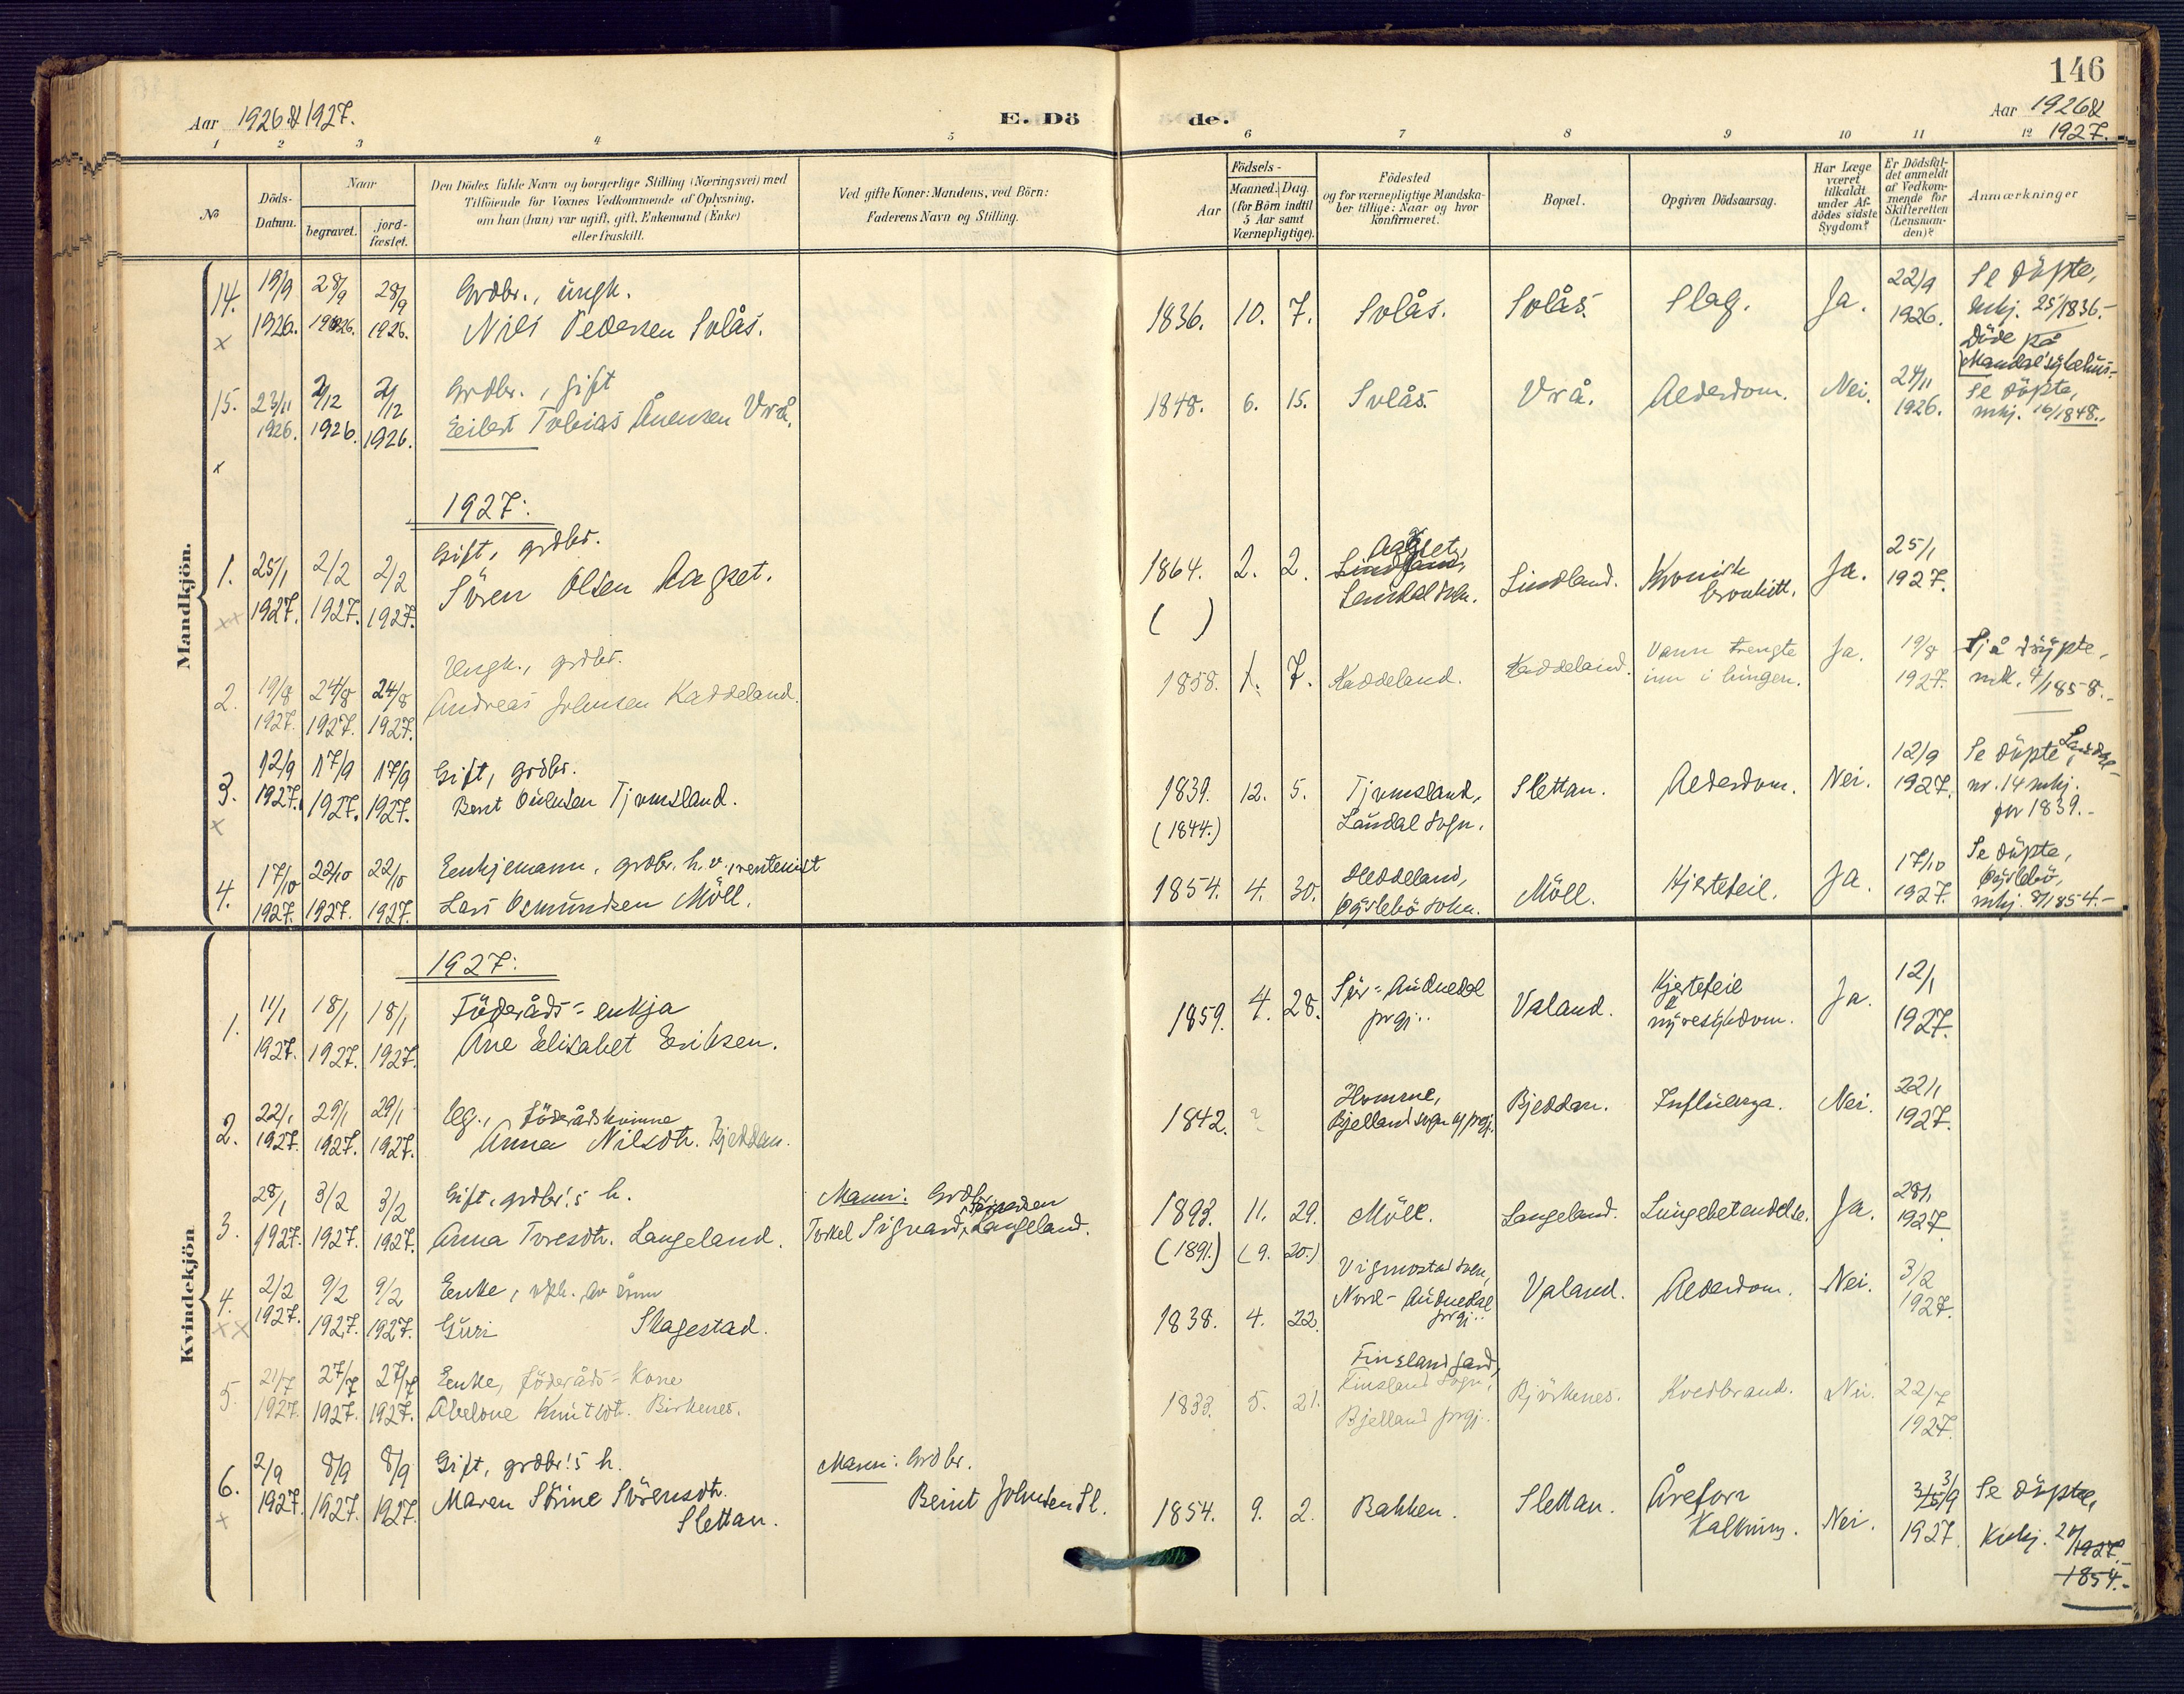 146
Aar 1926 & 1927.
E. Dö
de.
Aar 1926 &
1927.
1 2 3 4 5 6 7 8 9 10 11 12
№
Döds-
Datum.
Naar
begravet.
jord-
fæstet.
Den Dödes fulde Navn og borgerlige Stilling (Næringsvei) med
Tilföiende for Voxnes Vedkommende af Oplysning,
om han (hun) var ugift, gift, Enkemand (Enke)
eller fraskilt.
Ved gifte Koner: Mandens, ved Börn:
Faderens Navn og Stilling.
Födsels-
Aar
Maaned. Dag.
(for Börn indtil
5 Aar samt
Værnepligtige).
Födested
og for værnepligtige Mandska-
ber tillige: Naar og hvor
konfirmeret.
Bopæl.
Opgiven Dödsaarsag.
Har Læge
været
tilkaldt
under Af-
dödes sidste
Sygdom?
Er Dödsfal-
det anmeldt
af Vedkom-
mende for
Skifteretten
(Lensman-
den)?
Anmærkninger
Mandkjön.
14. 19/9 1926. 28/9 1926. 28/9 1926.
Grdbr., ungk.
Nils Pedersen Solås.
1836. 10. 7. Solås. Solås. Slag. Ja. 22/9 1926.
Se döpte,
mkj. 25/1836.-
Döde på
Mandal sykehus.-
15. 23/11 1926. 2/12 1926. 2/12 1926.
Grdbr., gift
Eilert Tobias Ånensen Vrå.
1848. 6. 15. Solås. Vrå. Alderdom. Nei. 24/11 1926.
Se döpte,
mkj. 16/1848.
1927:
1. 25/1 1927. 2/2 1927. 2/2 1927.
Gift, grdbr.
Sören Olsen Aagset.
1864. 2. 2. Aagset,
Lindland,
Laudal sokn.
Lindland. Kronisk
bronkitt. Ja. 25/1 1927.
( )
2. 19/8 1927. 24/8 1927. 24/8 1927.
Ungk., grdbr.
Andreas Johnsen Kaddeland.
1858. 1. 7. Kaddeland. Kaddeland. Vann trengte
inn i lungen. Ja. 19/8 1927.
Sjå döypte,
mk. 4/1858.-
3. 12/9 1927. 17/9 1927. 17/9 1927.
Gift, grdbr.
Bent Tjomsland.
1839. 12. 5. Tjomsland,
(1844.) Laudal sogn.
Slettan. Alderdom. Nei. 12/9 1927.
Se döpte,
nr. 14 mkj.
for 1839.-
4. 17/10 1927. 22/10 1927. 22/10 1927.
Enkjemann, grdbr. h.v., rentenist
Lars Osmundsen Möll.
1854. 4. 30. Heddeland,
Öyslebö sokn.
Möll. Hjertefeil. Ja. 17/10 1927.
Se döpte,
Öyslebö,
mkj. 8/1854.-
Kvindekjön
1927:
1. 11/1 1927. 18/1 1927. 18/1 1927.
Föderåds-enkja
Ane Elisabet Eriksen.
1859. 4. 28. Sör-Audnedal
prgj..
Valand. Hjertefeil
&
nyresykdom. Ja. 12/1 1927.
2. 22/1 1927. 29/1 1927. 29/1 1927.
Ug., föderådskvinne
Anna Nilsdtr. Bjeddan.
1842. ? Homme,
Bjelland sogn og prgj.
Bjeddan. Influenza. Nei. 22/1 1927.
3. 28/1 1927. 3/2 1927. 3/2 1927.
Gift, grdbr's h.
Anna Toresdtr. Langeland.
Mann: Grdbr.
Torkel Sigvard Langeland.
1893. 11. 29. Möll. Langeland. Lungebetendelse. Ja. 28/1 1927.
(1891.) (9. 20.)
4. 2/2 1927. 9/2 1927. 9/2 1927.
Enke,
Guri Skagestad.
1838. 4. 22. Vigmostad sokn,
Nord-Audnedal
prgj..
Valand. Alderdom. Nei. 3/2 1927.
5. 21/7 1927. 27/7 1927. 27/7 1927.
Enke, föderåds-kone
Abelone Knutsdtr. Birkenes.
1833. 5. 21. Finsland gard,
Finsland sogn,
Bjelland prgj..
Björkenes. Koldbrand. Nei. 22/7 1927.
6. 2/9 1927. 8/9 1927. 8/9 1927.
Gift, grdbr's h.
Maren Sörine Sörensdtr.
Slettan.
Mann: Grdbr.
Beint Johnsen Sl.
1854. 9. 2. Bakken. Slettan. Åreforr
kalkning. Nei. 3/9 1927.
Se döpte,
kvkj. 20/1927.
1854.-